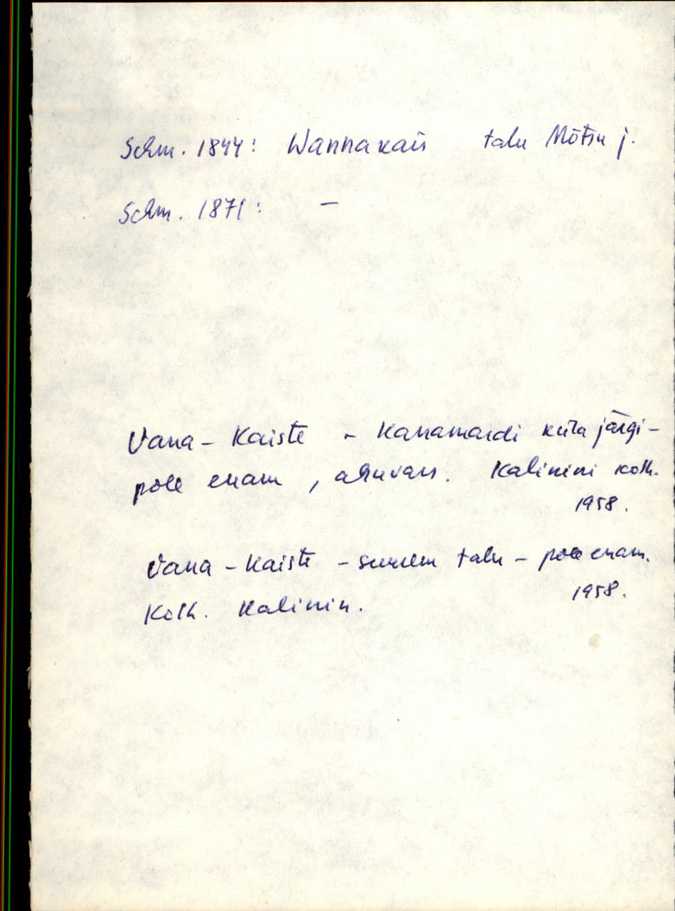 Schm. 1844: Wannakais talu Mõtsu j.
Schm. 1871: –
Vana-Kaiste - Kanamardi küla järgi -
pole enam, ahervars. Kalinini kolh.
1958.
Vana-Kaiste - suurem talu - pole enam.
1958.
Kolh. Kalinin.